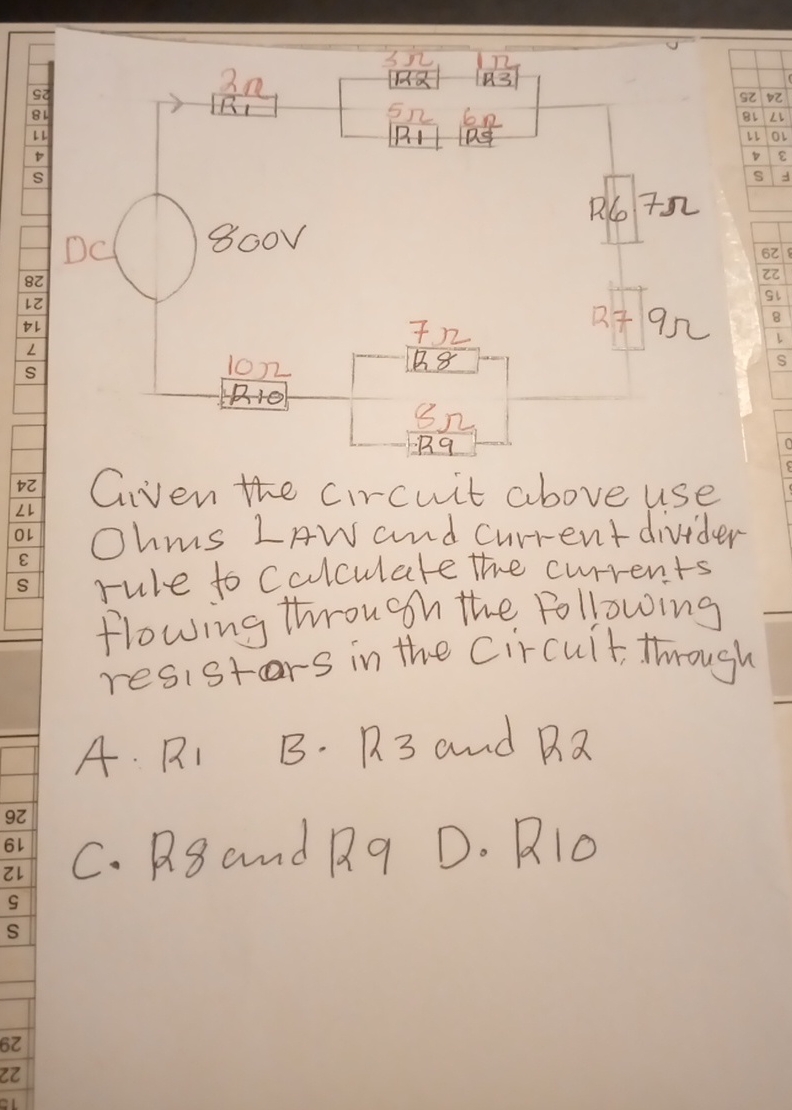 3Ω 1Ω
2Ω R2 R3
R1 5Ω 6Ω
R1 R5
R6 7Ω
DC 800V
R7 9Ω
7Ω
10Ω R8
R10 8Ω
R9
Given the circuit above use
Ohms LAW and current divider
rule to calculate the currents
flowing through the following
resistors in the circuit, through
A. R1 B. R3 and R2
C. R8 and R9 D. R10
25
18
11
4
S
28
21
14
7
S
24
17
10
3
S
26
19
12
5
S
29
22
15
25 24
18 17
11 10
4 3
S F
29
22
15
8
1
S